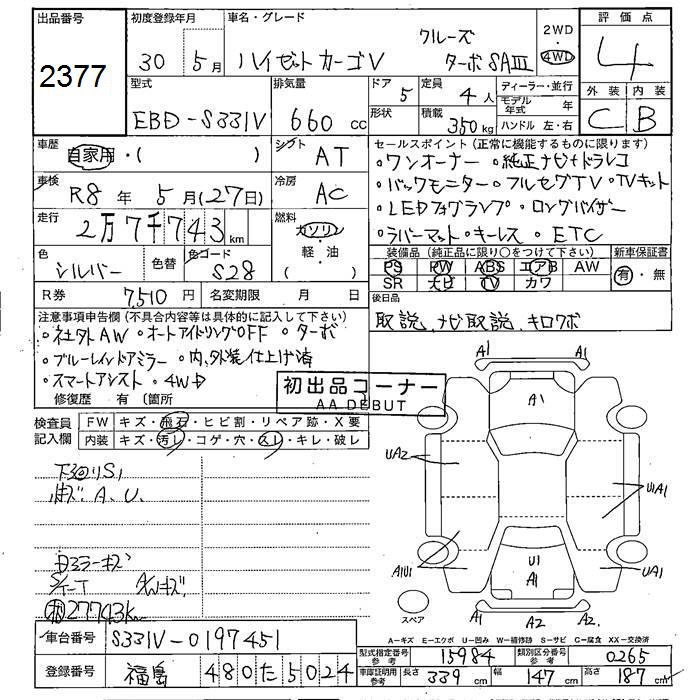 出品番号 初度登録年月 車名・グレード 評価点
2377 30 5月 ハイゼットカーゴV クルーズ ターボSAⅢ 2WD 4WD 4
型式 排気量 ドア 定員 ディーラー・並行 外装 内装
EBD-S331V 660cc 5 4人 モデル年式 年 C B
形状 積載 350kg ハンドル 左・右
車歴 自家用・( ) シフト AT
セールスポイント (正常に機能するものに限ります)
・ワンオーナー ・純正ナビ+ドラレコ
・バックモニター ・フルセグTV ・TVキット
・LEDフォグランプ ・ロングバイザー
・ラバーマット ・キーレス ・ETC
車検 R8年 5月(27日) 冷房 AC
走行 2万7千743km 燃料 ガソリン 軽・油 ( )
色 シルバー 色替 色コード S28
装備品 (純正品に限り○をつけて下さい) 新車保証書
PS PW ABS エアB AW 有・無
SR ナビ TV カワ
R券 7,510円 名変期限 月 日
後日品
取説、ナビ取説、キロクボ
注意事項申告欄 (不具合内容等は具体的に記入して下さい)
・社外AW ・オートアイドリングOFF ・ターボ
・ブルーレインドアミラー ・内、外装仕上げ済
・スマートアシスト ・4WD
修復歴 有 ( )箇所
初出品コーナー
AA DEBUT
検査員記入欄 FW キズ・飛石・ヒビ割・リペア跡・X要
内装 キズ・汚レ・コゲ・穴・スレ・キレ・破レ
下回りS1
小キズ A、U、
ドミラーキズ
S/T-T A/Wキズ
27743K
A1 A1
A1
UA2
U1A1
A1U1
U1
A1
UA1
A1 A2 A2
スペア
A-キズ E-エクボ U-凹み W-補修跡 S-サビ C-腐食 XX-交換済
車台番号 S331V-0197451
型式指定番号 参考 15984 類別区分番号 参考 0265
登録番号 福島 480 た 5024
車庫証明用 参考 長さ 339cm 幅 147cm 高さ 187cm